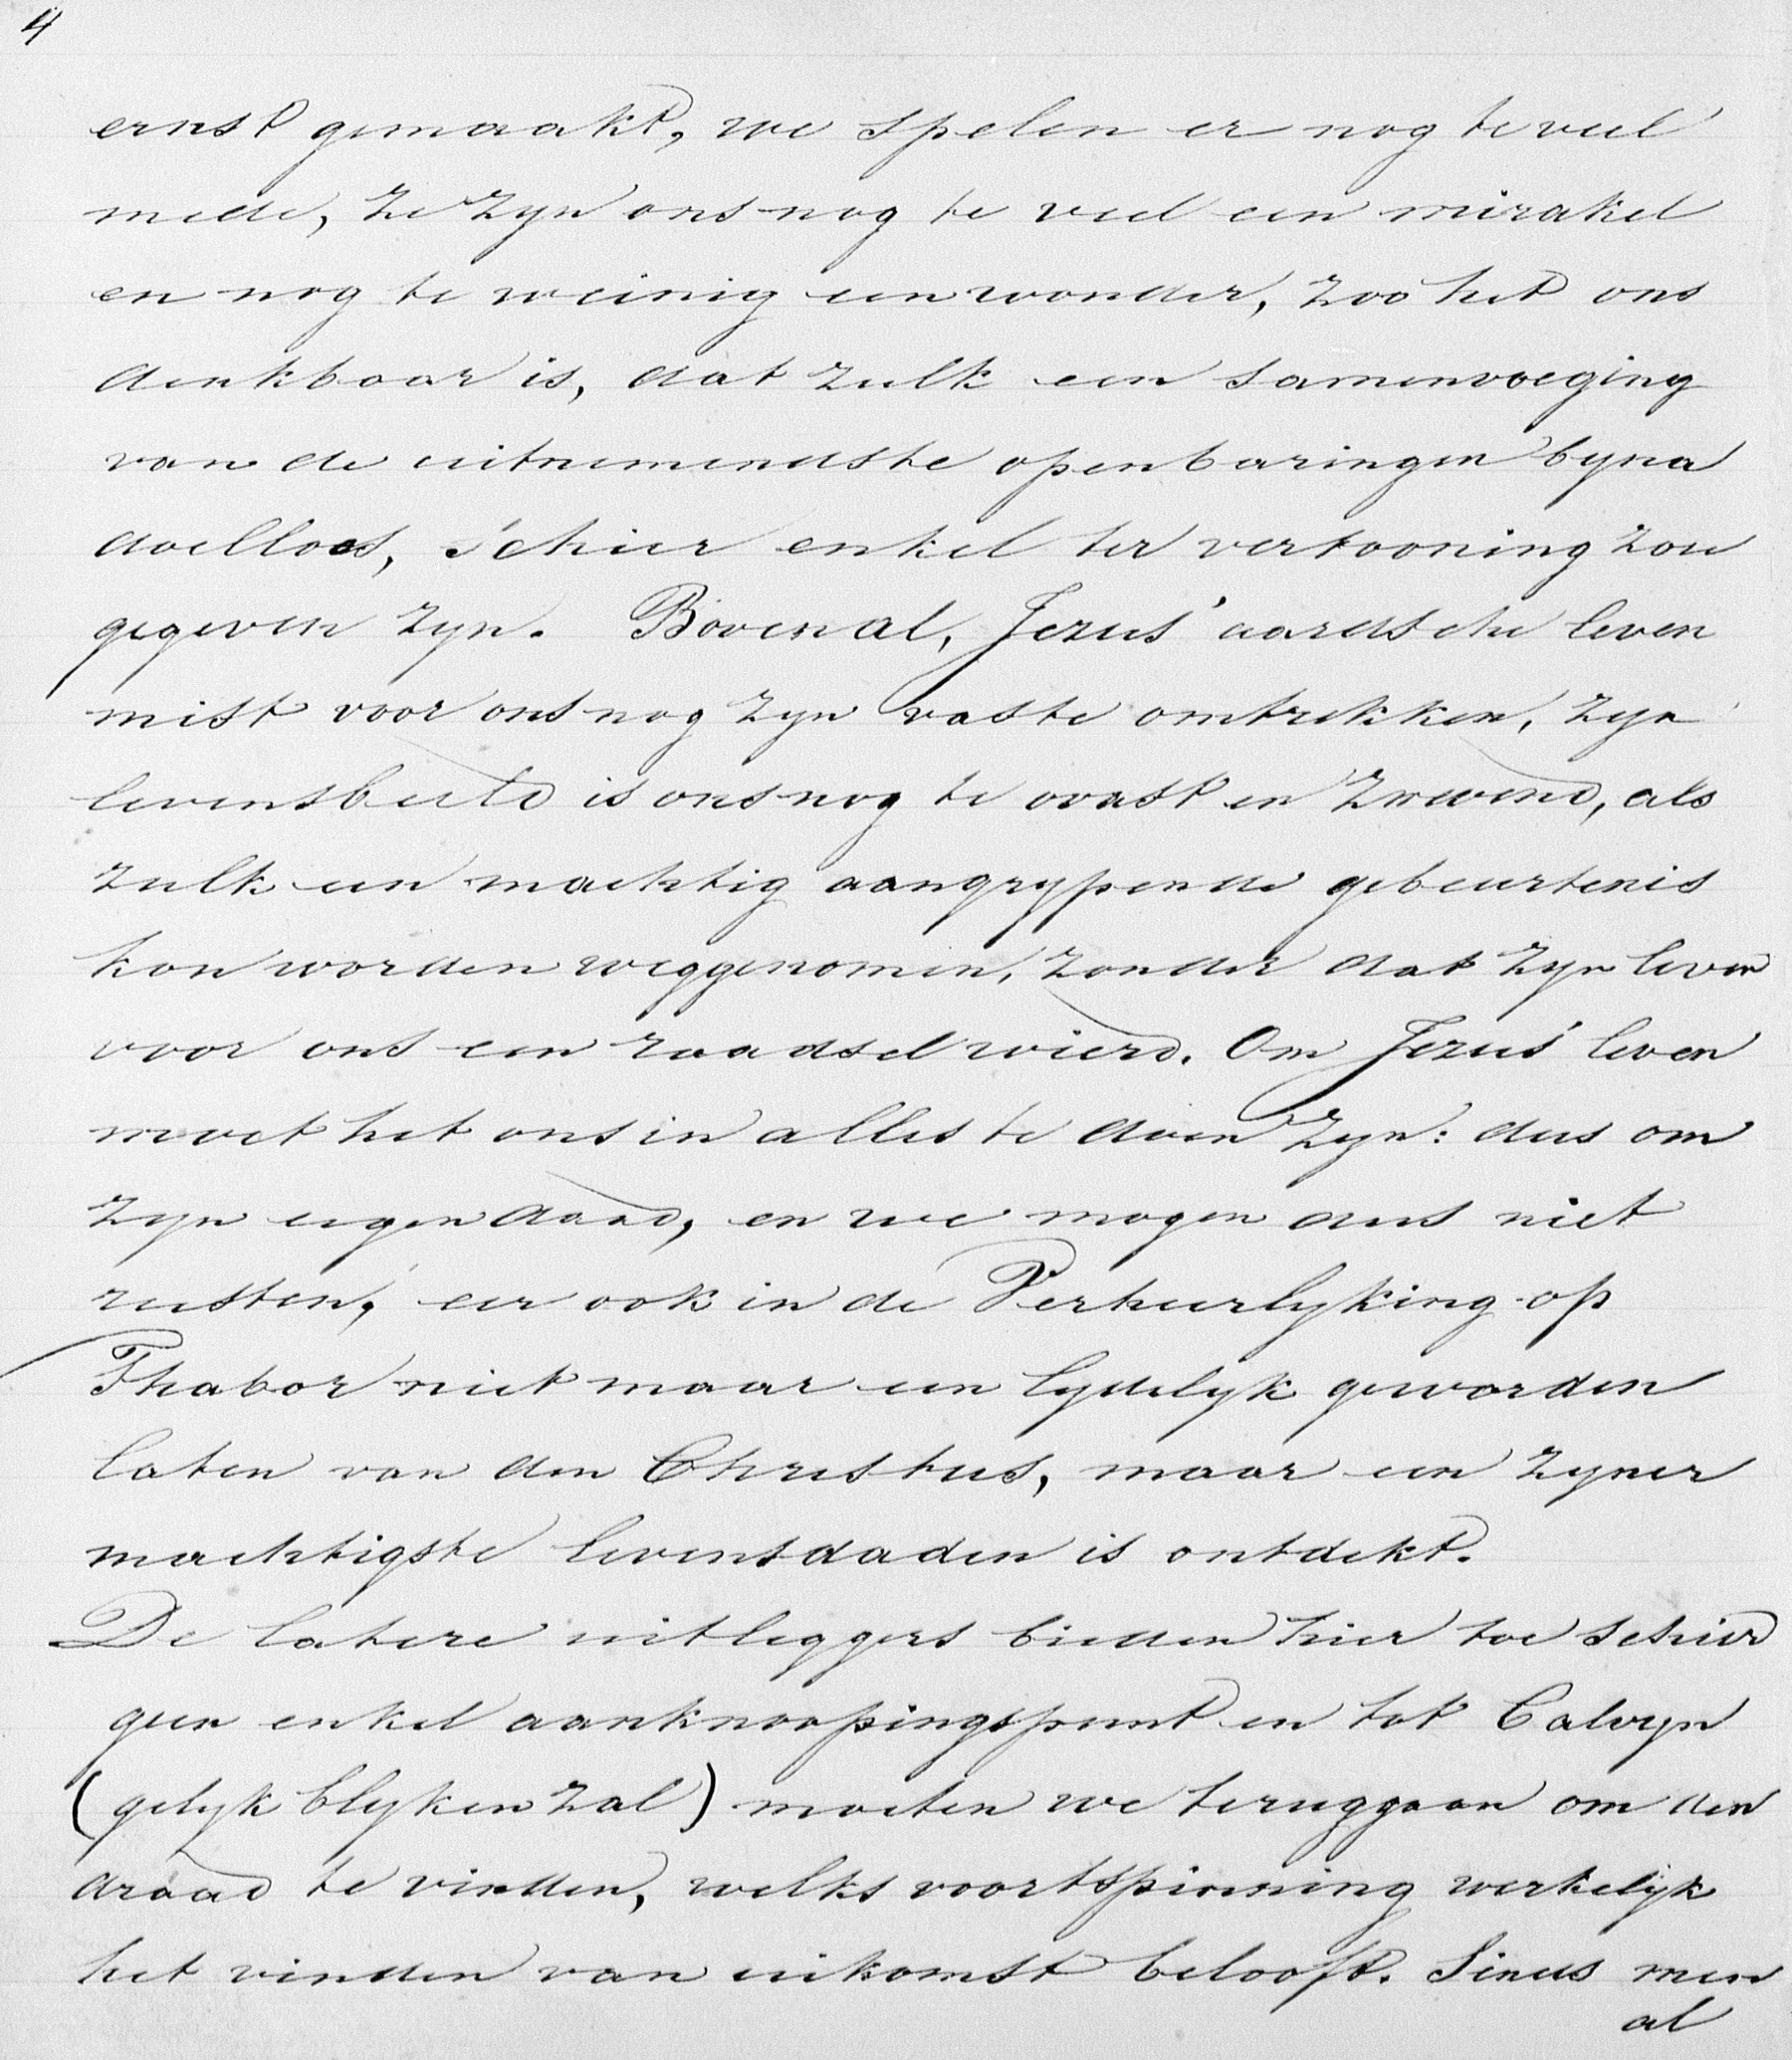 4
ernst gemaakt, we spelen er nog te veel
mede, ze zyn ons nog te veel een mirakel
en nog te weinig een wonder, zoo het ons
denkbaar is, dat zulk een samenvoeging
van de uitnemendste openbaringen byna
doelloos, schier enkel ter vertooning zou
gegeven zyn. Bovenal, Jezus' aardsche leven
mist voor ons nog zyn vaste omtrekken, zyn
levensbeeld is ons nog te vast en zwevend, als
zulk een machtig aangrypende gebeurtenis
kon worden weggenomen, zonder dat zyn leven
voor ons een raadsel wierd. Om Jezus' leven
moet het ons in alles te doen zyn: dus om
zyn eigen daad, en we mogen dus niet
rusten, eer ook in de Verheerlyking op
Thabor niet maar een lydelyk geworden
laten van den Christus, maar een zyner
machtigste levensdaden is ontdekt.
De latere uitleggers bieden hier toe schier
geen enkel aanknoopingspunt en tot Calvyn
(gelyk blyken zal) moeten we teruggaan om den
draad te vinden, welks voortspinning werkelijk
het vinden van uikomst belooft. Sinds men
al